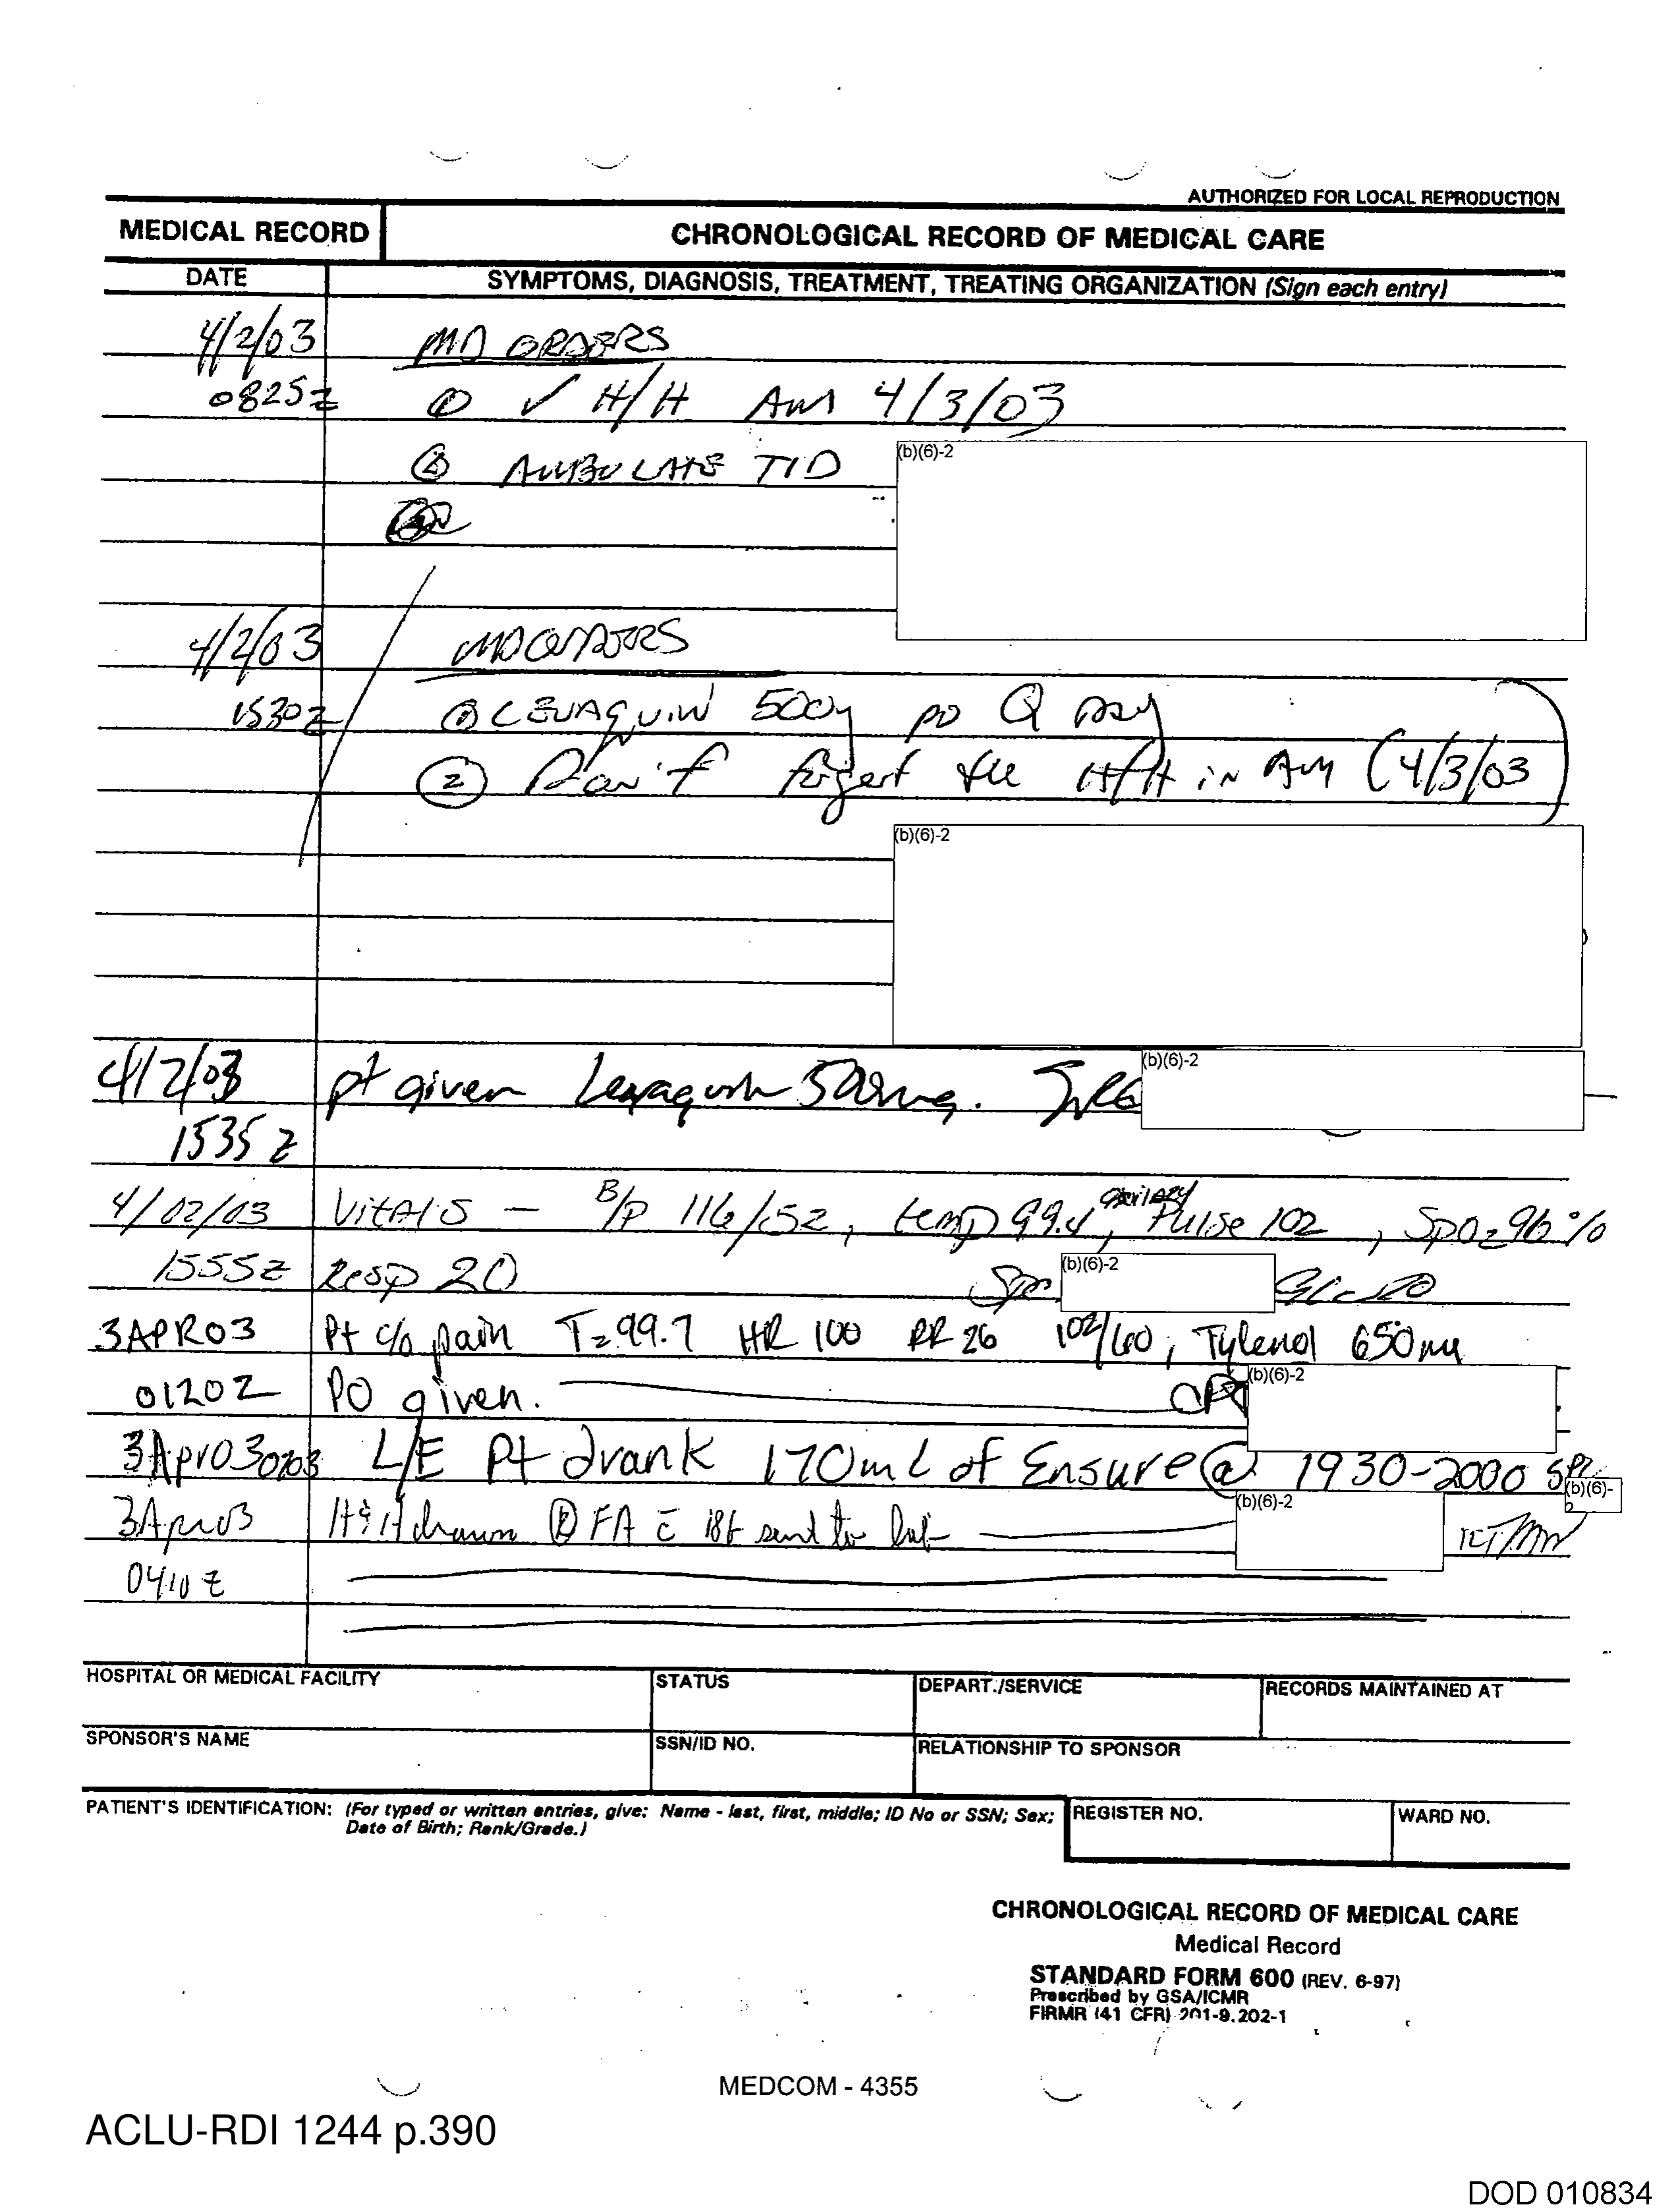 AUTHORIZED FOR LOCAL REPRODUCTION
MEDICAL RECORD CHRONOLOGICAL RECORD OF MEDICAL CARE
DATE SYMPTOMS, DIAGNOSIS, TREATMENT, TREATING ORGANIZATION (Sign each entry)
4/2/03 MD ORDERS
0825z ① ✓ H/H AM 4/3/03
② AMBULATE TID (b)(6)-2
4/2/03 MD ORDERS
1530z ① LEVAQUIN 500 po Q DAY
② Don't forget the H/H in AM (4/3/03
(b)(6)-2
4/2/03 pt given Levaquin 500mg. (b)(6)-2
1535z
4/02/03 Vitals - B/P 116/52, temp 99.4 axillary, Pulse 102, SpO2 96%
1555z Resp 20 (b)(6)-2
3APR03 Pt c/o pain T=99.7 HR 100 RR 26 102/60; Tylenol 650mg
0120Z PO given. CPT (b)(6)-2
3Apr03 L/E Pt drank 170mL of Ensure @ 1930-2000 (b)(6)-2
3Apr03 H&H drawn Ⓡ FA c̄ 18g sent to lab (b)(6)-2
0410z
HOSPITAL OR MEDICAL FACILITY STATUS DEPART./SERVICE RECORDS MAINTAINED AT
SPONSOR'S NAME SSN/ID NO. RELATIONSHIP TO SPONSOR
PATIENT'S IDENTIFICATION: (For typed or written entries, give: Name - last, first, middle; ID No or SSN; Sex; REGISTER NO. WARD NO.
Date of Birth; Rank/Grade.)
CHRONOLOGICAL RECORD OF MEDICAL CARE
Medical Record
STANDARD FORM 600 (REV. 6-97)
Prescribed by GSA/ICMR
FIRMR (41 CFR) 201-9.202-1
MEDCOM - 4355
ACLU-RDI 1244 p.390
DOD 010834